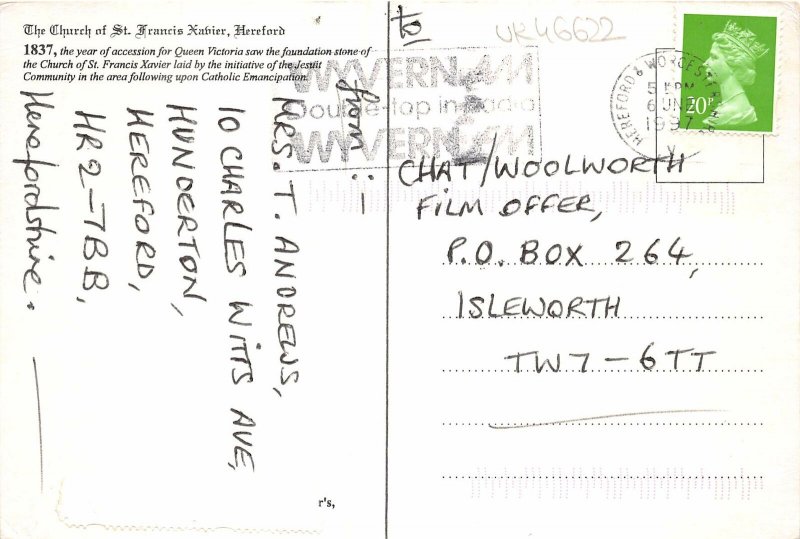 The Church of St. Francis Xavier, Hereford
1837, the year of accession for Queen Victoria saw the foundation stone of
the Church of St. Francis Xavier laid by the initiative of the Jesuit
Community in the area following upon Catholic Emancipation.
from :-
MRS. T. ANDREWS,
10 CHARLES WITTS AVE,
HUNDERTON,
HEREFORD,
HR2-7BB,
Herefordshire.
r's,
to
UK46622
WYVERN AM
Double-tap in Radio
WYVERN AM
HEREFORD & WORCESTER
5 PM
6 JN
1997
20P
CHAT/WOOLWORTH
FILM OFFER,
P.O. BOX 264,
ISLEWORTH
TW7-6TT